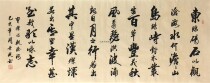 東臨碣石以觀
滄海水何澹澹山
島竦峙樹木叢生
百草豐茂秋風
蕭瑟洪波湧
起日月之行若出
其中星漢燦爛
若出其里幸甚
至哉歌以詠志